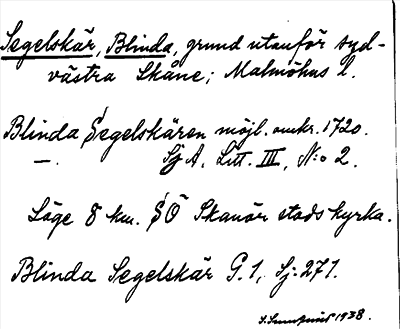 Segelskär, Blinda, grund utanför syd-
västra Skåne; Malmöhus l.
Blinda Segelskären möjl. omkr. 1720.
—. Sj A, Litt. III, N:o 2.
Läge 8 km. SÖ Skanör stads kyrka.
Blinda Segelskär G.1, Sj.271.
1938.